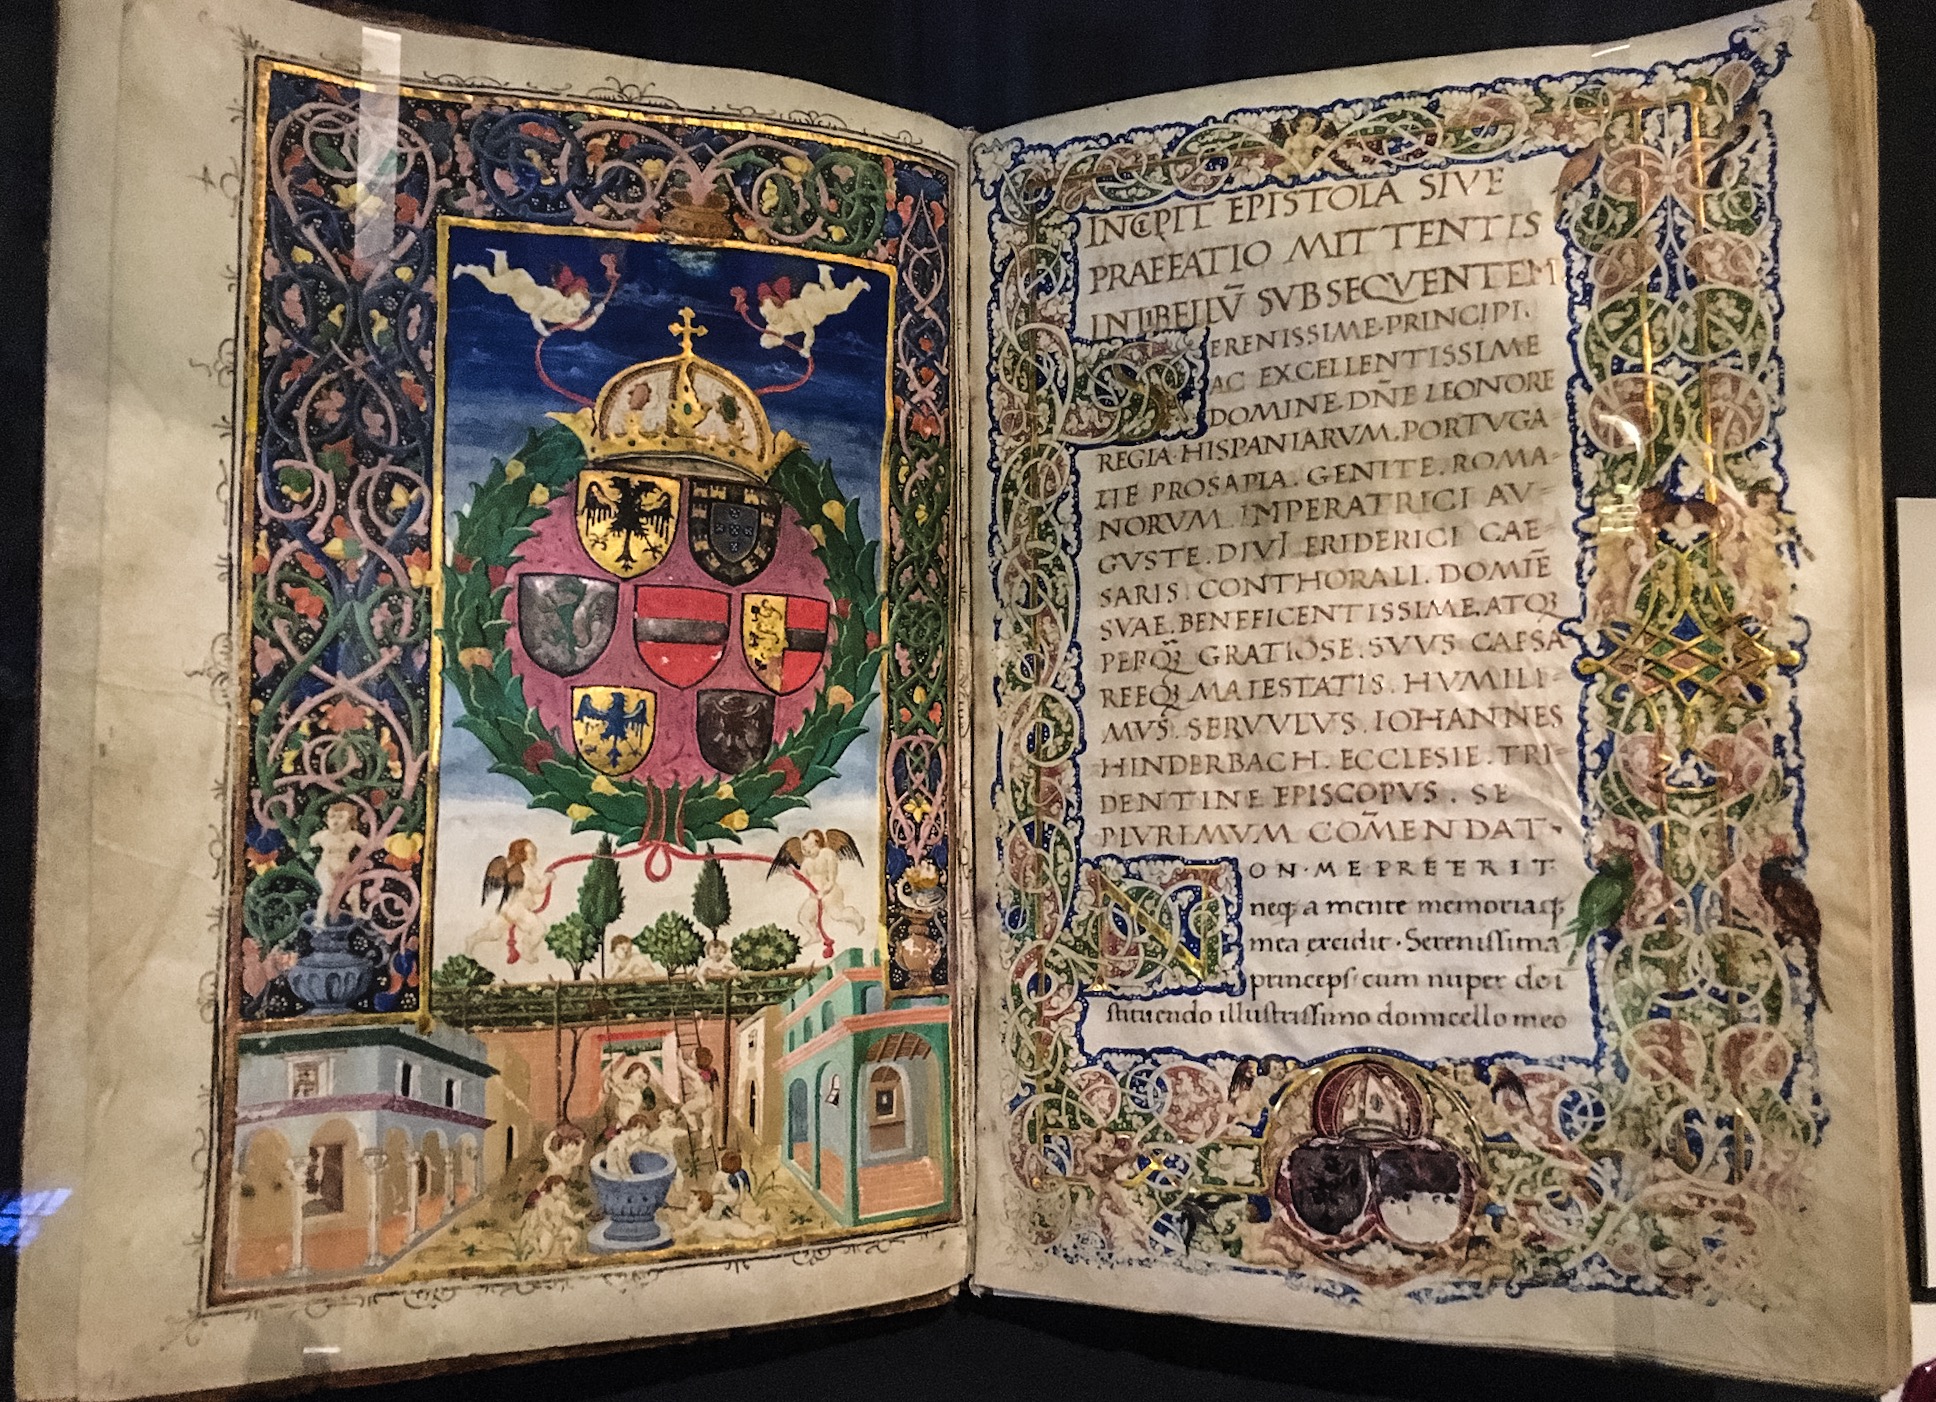 INCIPIT EPISTOLA SIVE
PRAEFATIO MITTENTIS
SVBSEQVENTEM
IN LIBELLV̄
SERENISSIME·PRINCIPI.
AC EXCELLENTISSIME
DOMINE·DN̄E LEONORE
REGIA·HISPANIARVM·PORTVGA
LIE PROSAPIA. GENITE. ROMA-
NORVM IMPERATRICI AV-
GVSTE. DIVI FRIDERICI CAE-
SARIS CONTHORALI. DOMIE̅
SVAE. BENEFICENTISSIME. ATQꝫ
PERQꝫ GRATIOSE. SVVS CAESA
REEQꝫ MAIESTATIS. HVMILI-
MVS. SERVVLVS. IOHANNES
HINDERBACH. ECCLESIE. TRI-
DENTINE EPISCOPVS. SE
PLVRIMVM COM̄ENDAT·
NON·ME·PRETERIT·
neqꝫ a mente memoriaqꝫ
mea excidit · Serenissima
princeps cum nuper dei
stituendo illustrissimo domicello meo